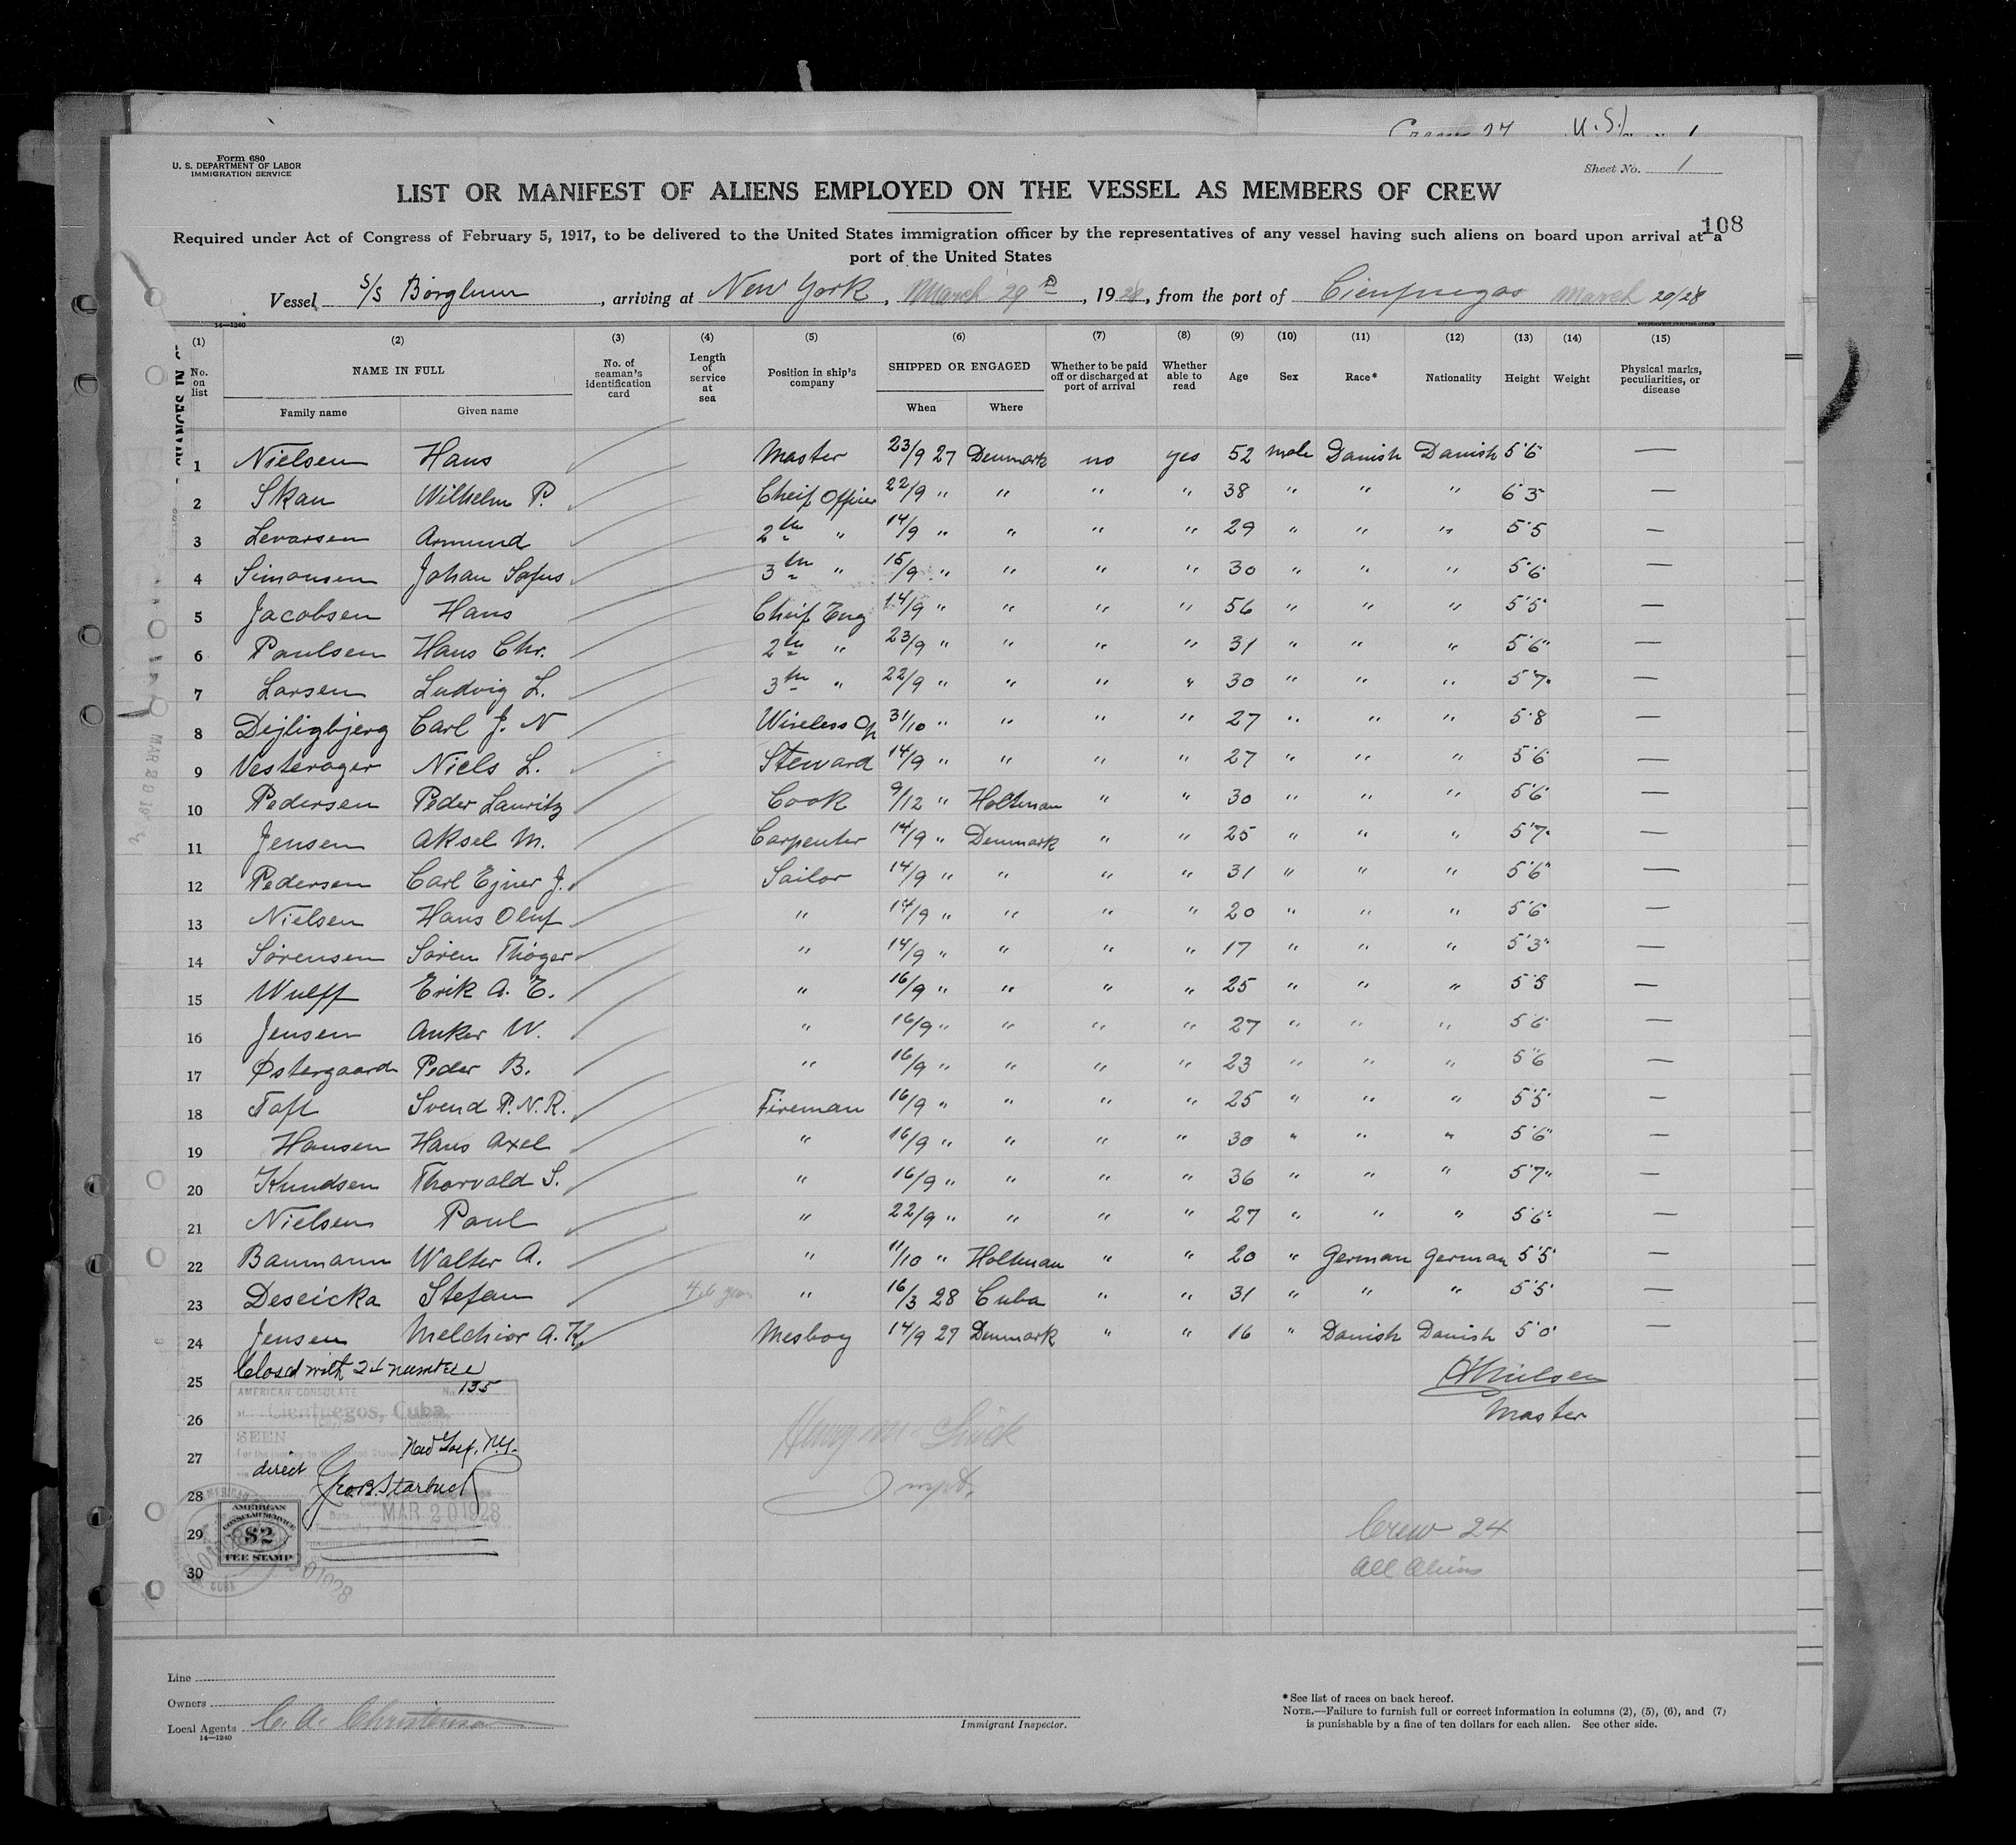 Crew 27 U.S. 1
Form 680
U. S. DEPARTMENT OF LABOR
IMMIGRATION SERVICE
Sheet No. 1
LIST OR MANIFEST OF ALIENS EMPLOYED ON THE VESSEL AS MEMBERS OF CREW
108
Required under Act of Congress of February 5, 1917, to be delivered to the United States immigration officer by the representatives of any vessel having such aliens on board upon arrival at a
port of the United States
Vessel S/S Borglum, arriving at New York, March 29, 1928, from the port of Cienfuegos March 20/28
14—1240
(1) (2) (3) (4) (5) (6) (7) (8) (9) (10) (11) (12) (13) (14) (15)
No. on list NAME IN FULL Family name Given name No. of seaman's identification card Length of service at sea Position in ship's company SHIPPED OR ENGAGED When Where Whether to be paid off or discharged at port of arrival Whether able to read Age Sex Race* Nationality Height Weight Physical marks, peculiarities, or disease
1 Nielsen Hans Master 23/9 27 Denmark no yes 52 male Danish Danish 5'6" —
2 Skau Wilhelm P. Cheif Officer 22/9 " " " " 38 " " " 6'3" —
3 Levarsen Armund 2th " 14/9 " " " " 29 " " " 5'5 —
4 Simonsen Johan Sofus 3th " 15/9 " " " " 30 " " " 5'6 —
5 Jacobsen Hans Cheif Eng 14/9 " " " " 56 " " " 5'5" —
6 Paulsen Hans Chr. 2th " 23/9 " " " " 31 " " " 5'6" —
7 Larsen Ludvig L. 3th " 22/9 " " " " 30 " " " 5'7" —
8 Dejligbjerg Carl J. N Wireless Op 31/10 " " " " 27 " " " 5'8 —
9 Vesterager Niels L. Steward 14/9 " " " " 27 " " " 5'6 —
10 Pedersen Peder Lauritz Cook 9/12 " Holtenau " " 30 " " " 5'6" —
11 Jensen Aksel M. Carpenter 14/9 " Denmark " " 25 " " " 5'7" —
12 Pedersen Carl Ejner J. Sailor 14/9 " " " " 31 " " " 5'6" —
13 Nielsen Hans Oluf " 14/9 " " " " 20 " " " 5'6 —
14 Sørensen Søren Thøger " 14/9 " " " " 17 " " " 5'3" —
15 Wulff Erik A. E. " 16/9 " " " " 25 " " " 5'5 —
16 Jensen Anker W. " 16/9 " " " " 27 " " " 5'6 —
17 Østergaard Peder B. " 16/9 " " " " 23 " " " 5'6 —
18 Toft Svend P. N. R. Fireman 16/9 " " " " 25 " " " 5'5" —
19 Hansen Hans Axel " 16/9 " " " " 30 " " " 5'6" —
20 Knudsen Thorvald S. " 16/9 " " " " 36 " " " 5'7" —
21 Nielsen Paul " 22/9 " " " " 27 " " " 5'6" —
22 Baumann Walter A. " 11/10 " Holtenau " " 20 " German German 5'5" —
23 Deseicka Stefan " 16/3 28 Cuba " " 31 " " " 5'5" —
24 Jensen Melchior A. K. Mesboy 14/9 27 Denmark " " 16 " Danish Danish 5'0" —
25 Closed with 24 number
H Nielsen
Master
AMERICAN CONSULATE No. 135
26 at Cienfuegos, Cuba.
SEEN
For the journey to the United States
27 New York, N.Y.
direct
28 Geo. B. Starbuck
MAR 20 1928
AMERICAN CONSULAR SERVICE $2 FEE STAMP
29
30
Crew 24
All Aliens
Line
Owners
Local Agents C. A. Christensen
14—1240
Immigrant Inspector.
*See list of races on back hereof.
NOTE.—Failure to furnish full or correct information in columns (2), (5), (6), and (7)
is punishable by a fine of ten dollars for each alien. See other side.